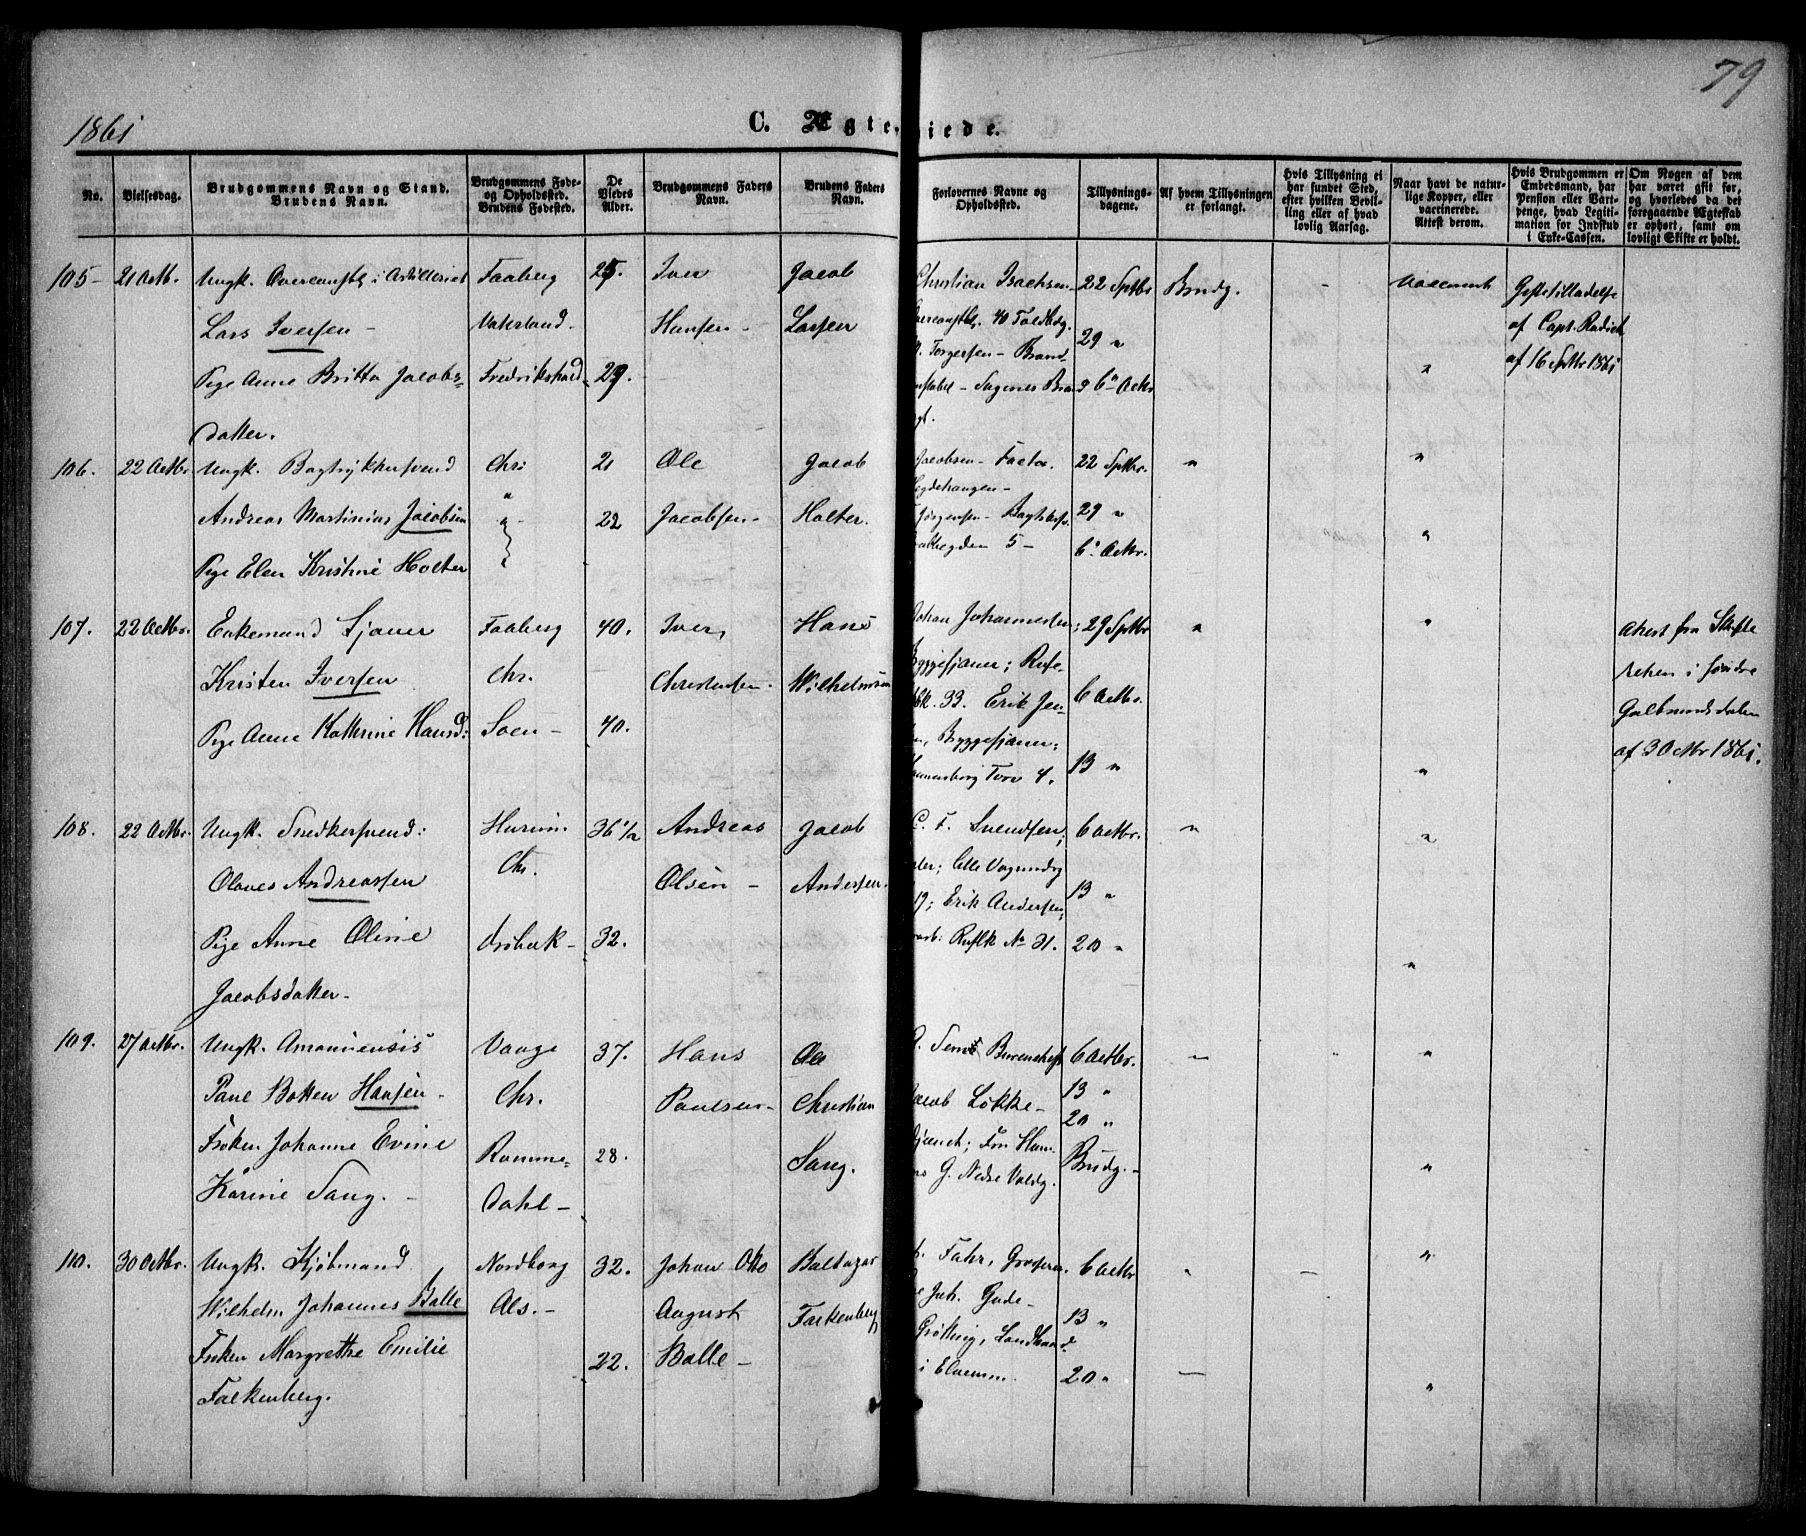 79
1861
C. Ægte, viede.
No.
Vielsesdag.
Brudgommens Navn og Stand.
Brudens Navn.
Brudgommens Føde- og Opholdssted. Brudens Fødested.
De Viedes Alder.
Brudgommens Faders Navn.
Brudens Faders Navn.
Forlovernes Navne og Opholdssted.
Tillysnings-dagene.
Af hvem Tillysningen er forlangt.
Hvis Tillysning ei har fundet Sted, efter hvilken Bevilling eller af hvad lovlig Aarsag.
Naar havt de naturlige Kopper, eller vaccinerede. Attest derom.
Hvis Brudgommen er Embedsmand, har Pension eller Vartpenge, hvad Legitimation for Indskud i Enke-Cassen.
Om Nogen af dem har været gift før, og hvorledes da det foregaaende Ægteskab er ophørt, samt om lovligt Skifte er holdt.
105 21 Octb. Ungk. Overconstb. i Artilleriet Faaberg 25. Iver Jacob Christian Isachsen 22 Sptbr Brudg. - Vaccineret Giftetilladelse
Lars Iversen - Vaterland. Hansen - Larsen Overconstb. 40 29 " af Capt.
Pige Anne Britta Jacobs- Fredrikshald 29. Torgersen - 6 Octbr " af 16 Sptbr 1861
datter.
106. 22 Octbr. Ungk. Bogtrykkersvend Chr 21 Ole Jacob Jacobsen - 22 Sptbr. " "
Andreas Martinius Jacobsen " 22 Jacobsen - Holter. Jørgensen - 29 "
Pige Elen Kristine Holter 5 - 6 Octbr. "
107. 22 Octbr. Enkemand Sjouer Faaberg 40. Iver Hans Johan Johannesen; 29 Sptbr " " Attest fra Skifte
Kristen Iversen Chr. Christensen. Wilhelmsen Byggesjouer; 33. Erik Jen- 6 Octbr. retten i søndre
Pige Anne Kathrine Hansd: Soen - 40. Byggesjouer; Gulbrandsdalen
Torv 4. 13 " " af 3 Octbr 1861.
108. 22 Octbr. Ungk. Snedkersvend: Hurum. 36 1/2 Andreas Jacob C. F. Svendsen; 6 Octbr. " "
Olaves Andreassen Chr. Olsen - Andersen. 19; Erik Andersen; 13 "
Pige Anne Oline Drøbak - 32. No 31. 20 " "
Jacobsdatter -
109. 27 Octbr. Ungk. Amanuensis Vaage 37. Hans Ole 6 Octbr. " " "
Paul Botten Hansen - Chr. Paulsen - Christian Jacob Løkke - 13 "
20 "
Frøken Johanne Evine Romme- 28. Sang. G. Nedre Voldg. Brudg. - "
Karine Sang. - dahl -
110. 30 Octbr. Ungk. Kjøbmand Nordborg 32. Johan Otto Baltazar Fahr, 6 Octbr " - "
Wilhelm Johannes Balle Als. - August Falkenberg Gude - 13 "
Frøken Margrethe Emilie 22. Balle - Grøtting, Landhand.
Falkenberg. i Elverum. 20 " - "